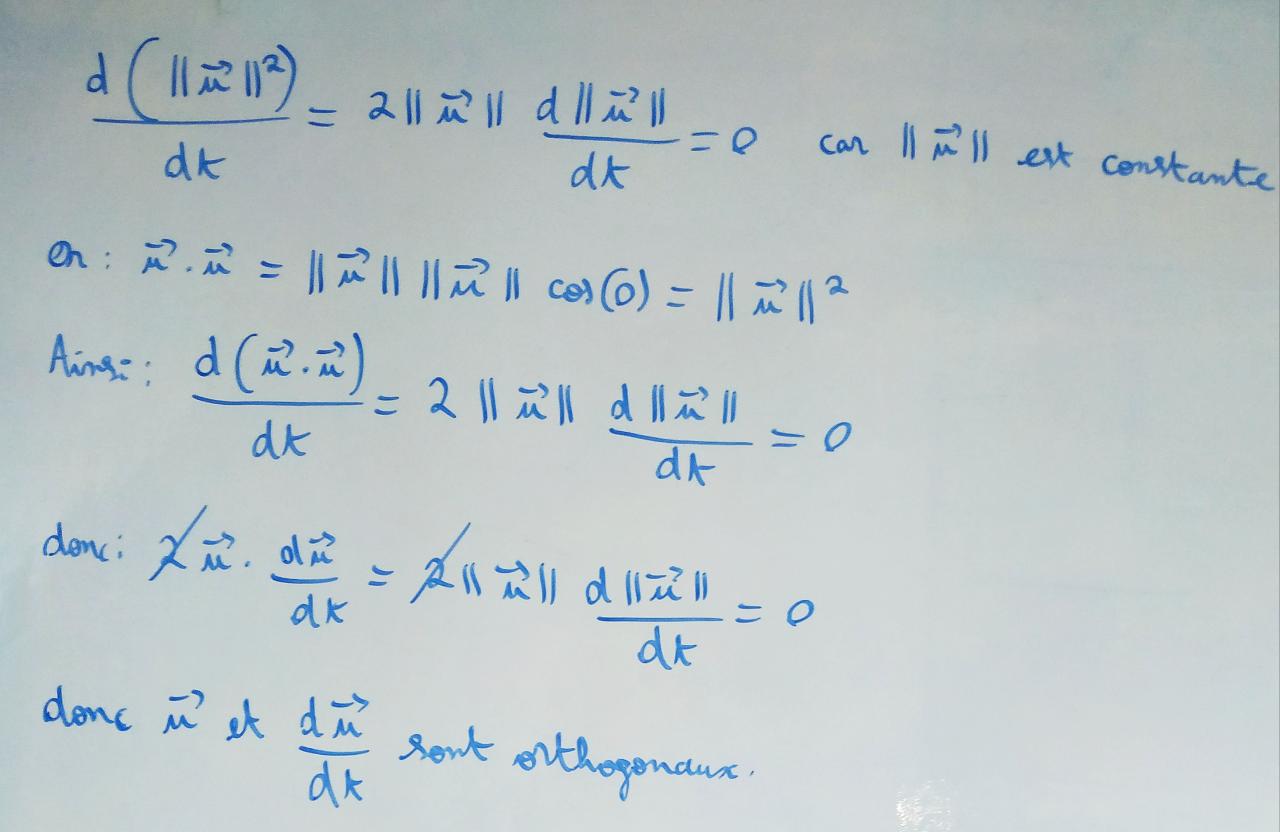 d(||u⃗||²)/dt = 2||u⃗|| d||u⃗||/dt = 0 car ||u⃗|| est constante
or : u⃗.u⃗ = ||u⃗|| ||u⃗|| cos(0) = ||u⃗||²
Ainsi : d(u⃗.u⃗)/dt = 2 ||u⃗|| d||u⃗||/dt = 0
donc : 2u⃗. du⃗/dt = 2||u⃗|| d||u⃗||/dt = 0
donc u⃗ et du⃗/dt sont orthogonaux.